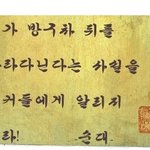 가 방구차 뒤를
라다닌다는 사실을
커들에게 알리지
라! 순대.